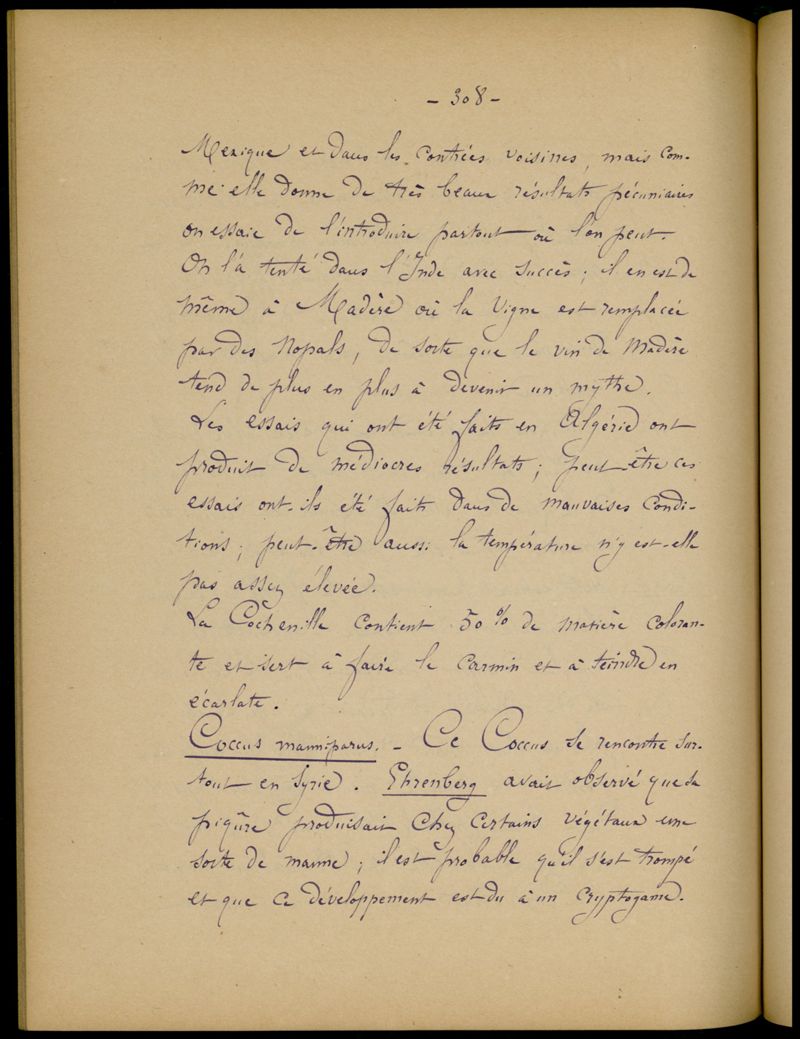 - 308 -
Mexique et dans les contrées voisines, mais com-
me elle donne de très beaux résultats pécuniaires
on essaie de l'introduire partout où l'on peut.
On l'a tenté dans l'Inde avec succès ; il en est de
même à Madère où la Vigne est remplacée
par des Nopals, de sorte que le vin de Madère
tend de plus en plus à devenir un mythe.
Les essais qui ont été faits en Algérie ont
produit de médiocres résultats ; peut-être ces
essais ont-ils été faits dans de mauvaises condi-
tions ; peut-être aussi la température n'y est-elle
pas assez élevée.
La Cochenille contient 50 % de matière coloran-
te et sert à faire le Carmin et à teindre en
écarlate.
Coccus manniparus. - Ce Coccus se rencontre sur-
tout en Syrie. Ehrenberg avait observé que sa
piqûre produisait chez certains végétaux une
sorte de manne ; il est probable qu'il s'est trompé
et que ce développement est du à un cryptogame.